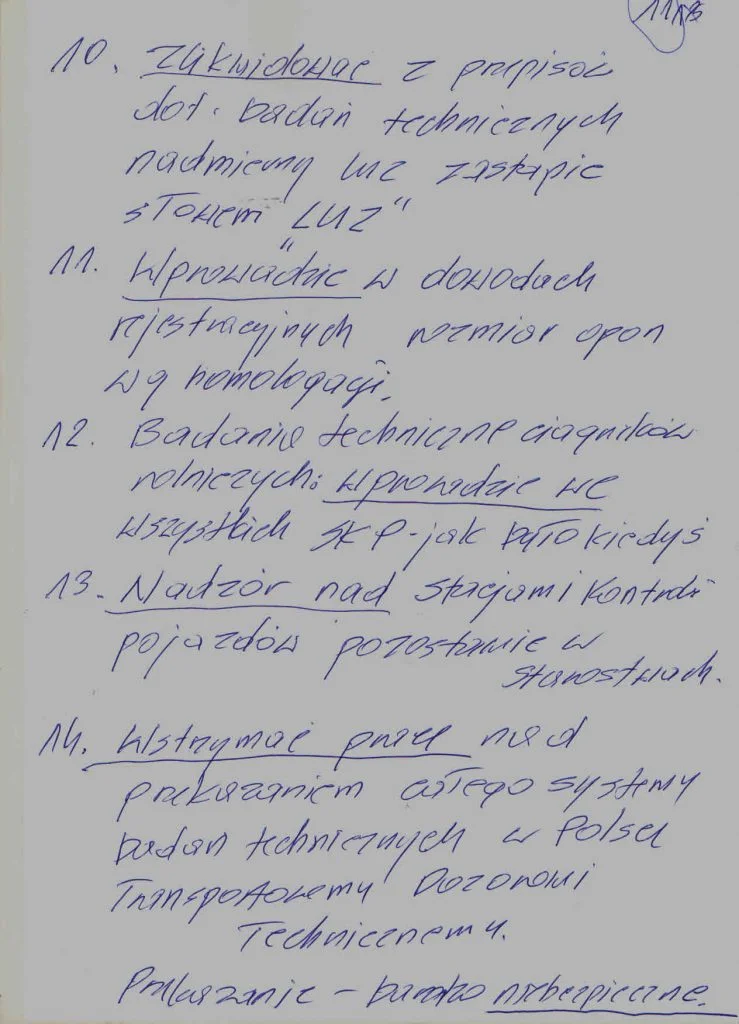 10. Zlikwidować z przepisów
dot. badań technicznych
nadmierny luz zastąpić
słowem "LUZ"
11. Wprowadzić w dowodach
rejestracyjnych rozmiar opon
wg homologacji.
12. Badanie techniczne ciągników
rolniczych: wprowadzić we
wszystkich SKP - jak było kiedyś
13. Nadzór nad stacjami kontroli
pojazdów pozostanie w
starostwach.
14. Wstrzymać prace nad
przekazaniem całego systemu
badań technicznych w Polsce
Transportowemu Dozorowi
Technicznemu.
Przekazanie - bardzo niebezpieczne.